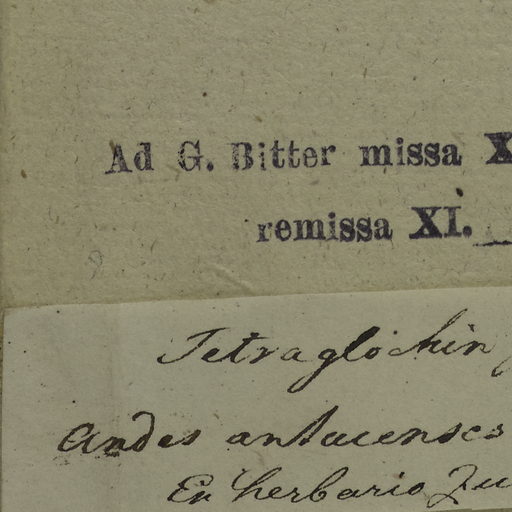 Ad G. Bitter missa X
remissa XI.
Tetraglochin
Andes antucenses
Ex herbario